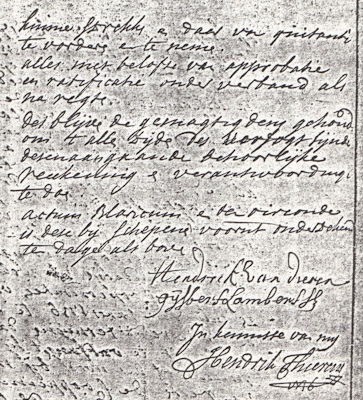 kinne strekke e daer van quitantie
te vordere e te neme
alles met belofte van approbatie
en ratificatie onder verband als
na regte
des blijve de gemagtigdens gehoud
om t'alle tijde des versogt sijnde
desenaangaande behoorlijke
reekening e verantwoording
te doe
actum Blaricum e ter oirconde
is dese bij schepene voornt onderteken
te dage als bove
Hendrick van Diren
Gijsbert Lambertsz
In kennisse van mij
Hendrik Thieren